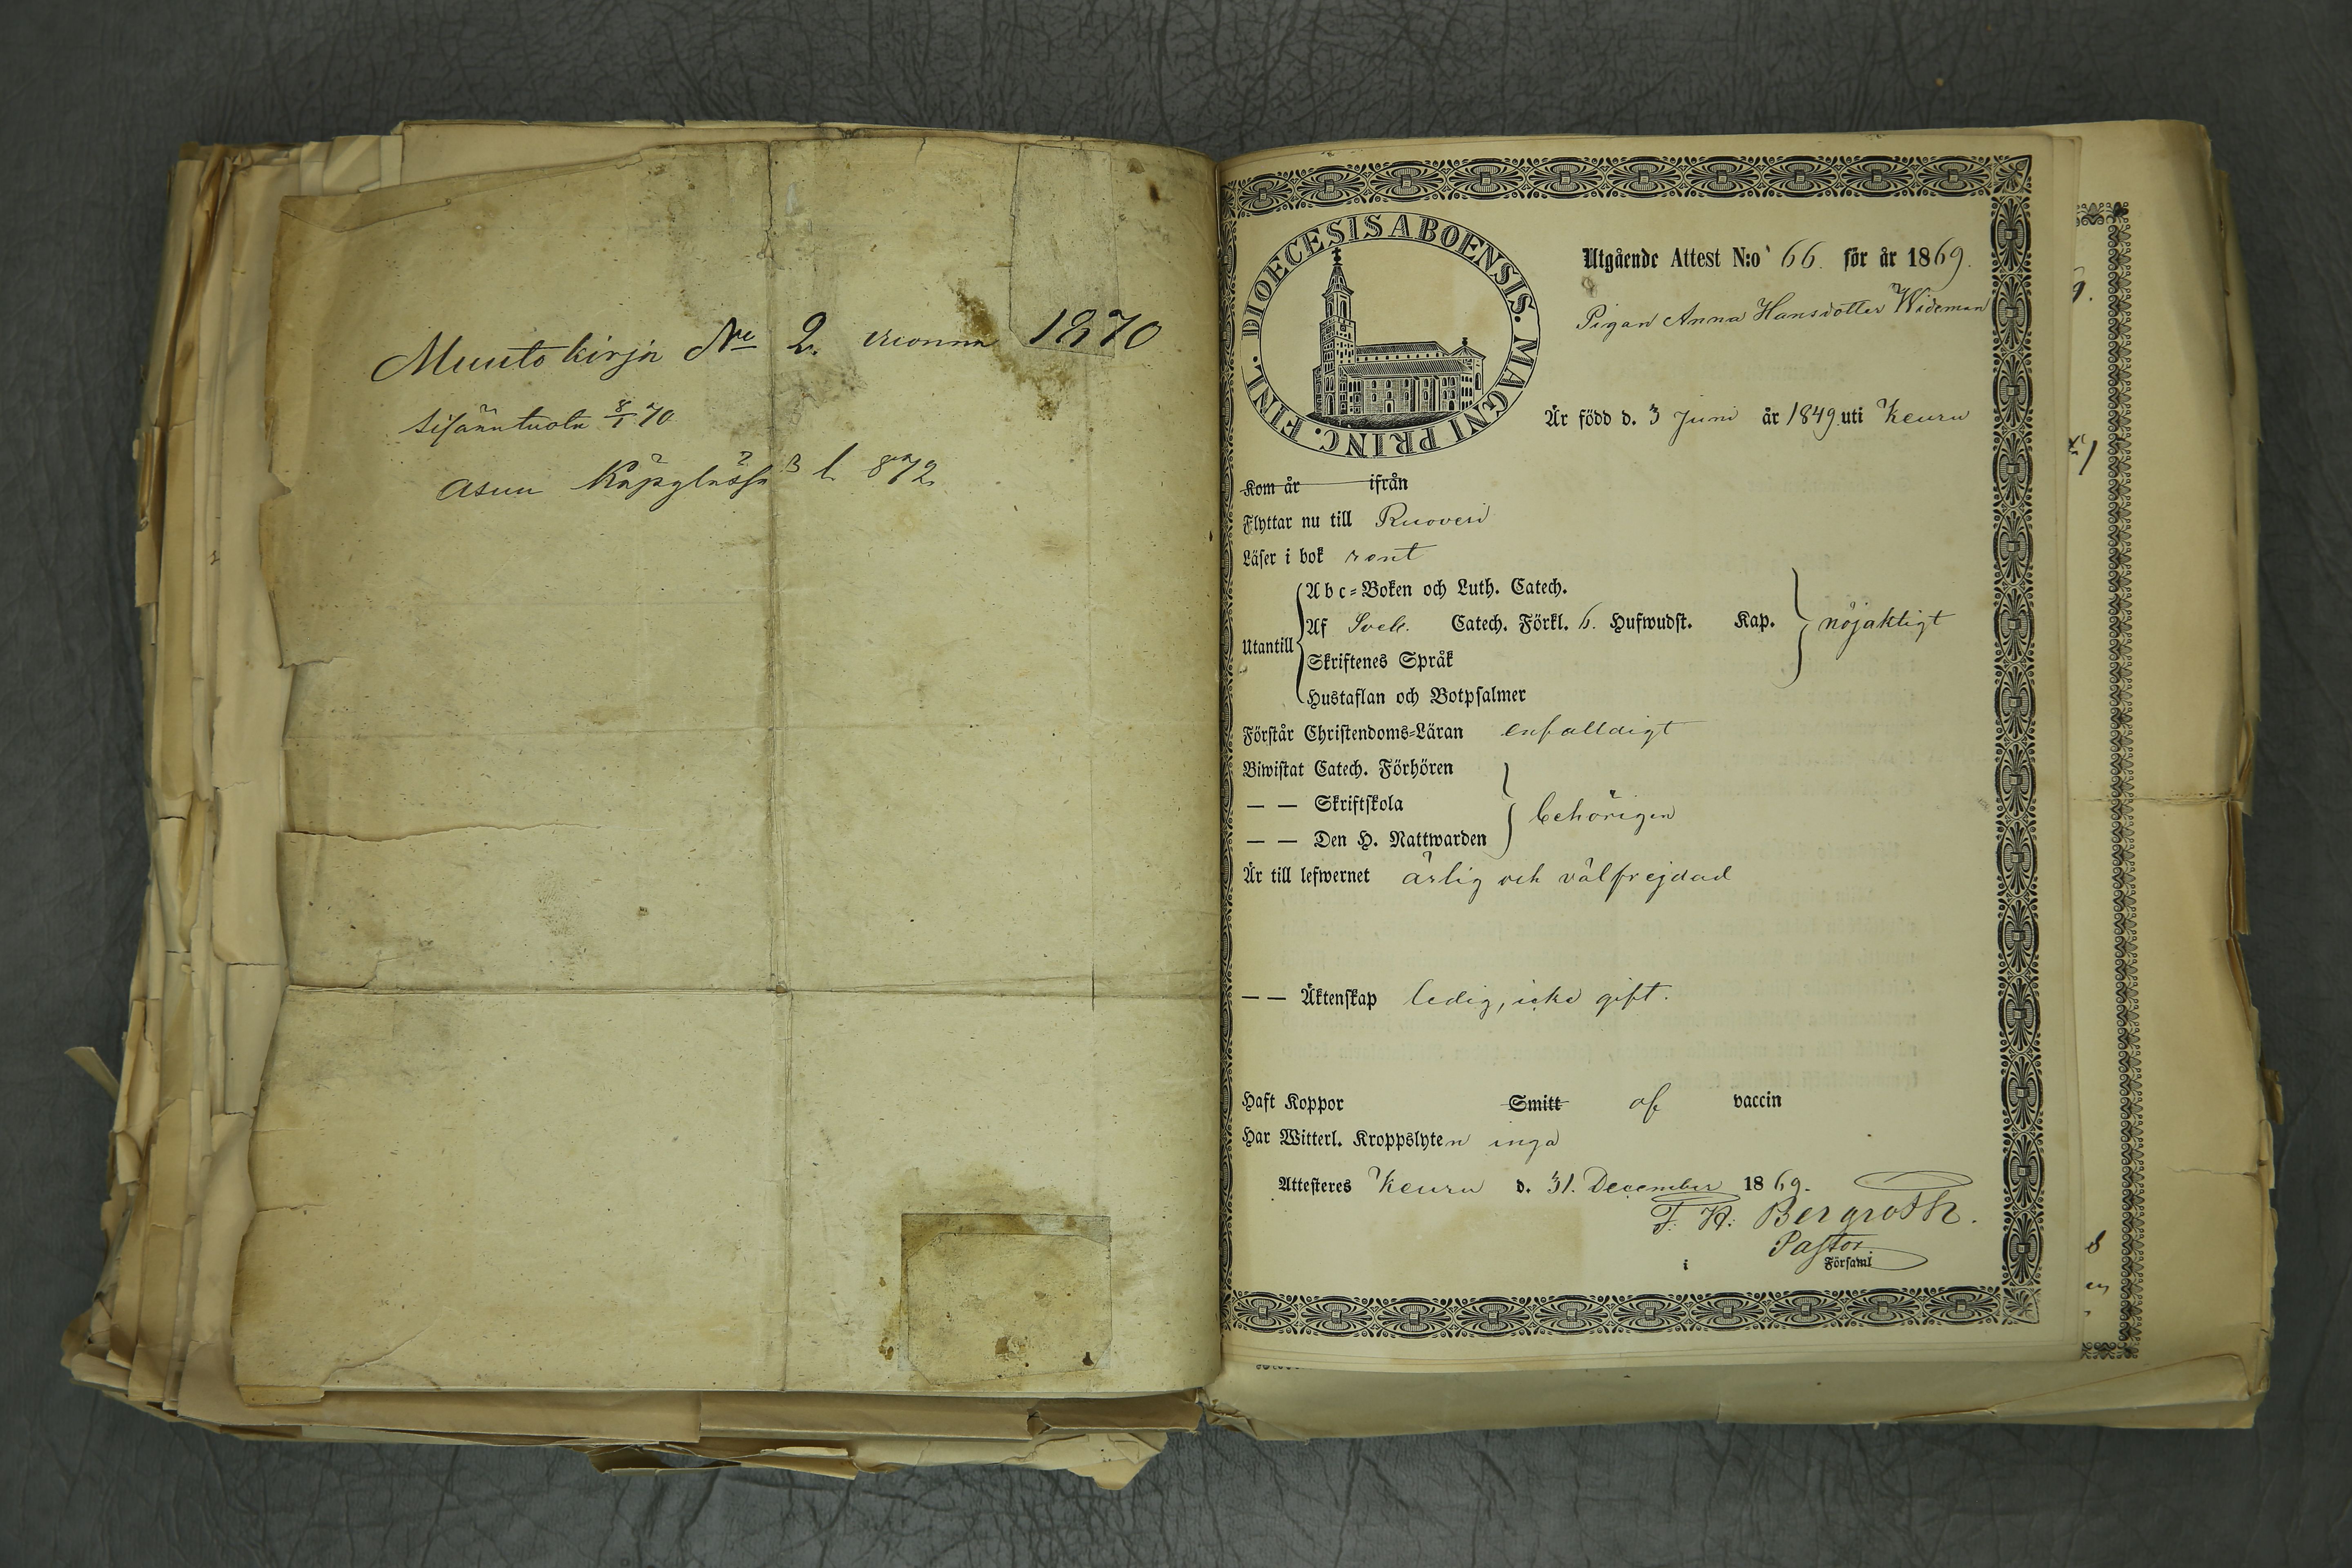 Muuto kirja No 2. vuonna 1870
sisääntuotu 8/1 70
asuu Käpylässä l. 872
DIOECESIS ABOENSIS. MAGNI PRINC. FINL.
Utgående Attest N:o 66. för år 1869.
Pigan Anna Hansdotter Wideman
Är född d. 3 Juni år 1849 uti Keuru
Kom år ifrån
Flyttar nu till Ruovesi
Läser i bok rent
Utantill
Abc-Boken och Luth. Catech.
Af Sveb. Catech. Förkl. 6. Hufwudst. Kap.
Skriftenes Språk
Hustaflan och Botpsalmer
nöjaktigt
Förstår Christendoms-Läran enfalldigt
Biwistat Catech. Förhören
— — Skriftskola
— — Den H. Nattwarden
behörigen
Är till lefwernet ärlig och välfrejdad
— — Äktenskap ledig, icke gift.
Haft Koppor Smitt af vaccin
Har Witterl. Kroppslyten inga
Attesteres Keuru d. 31. December 1869.
F. H. Bergroth.
Pastor
i Församl